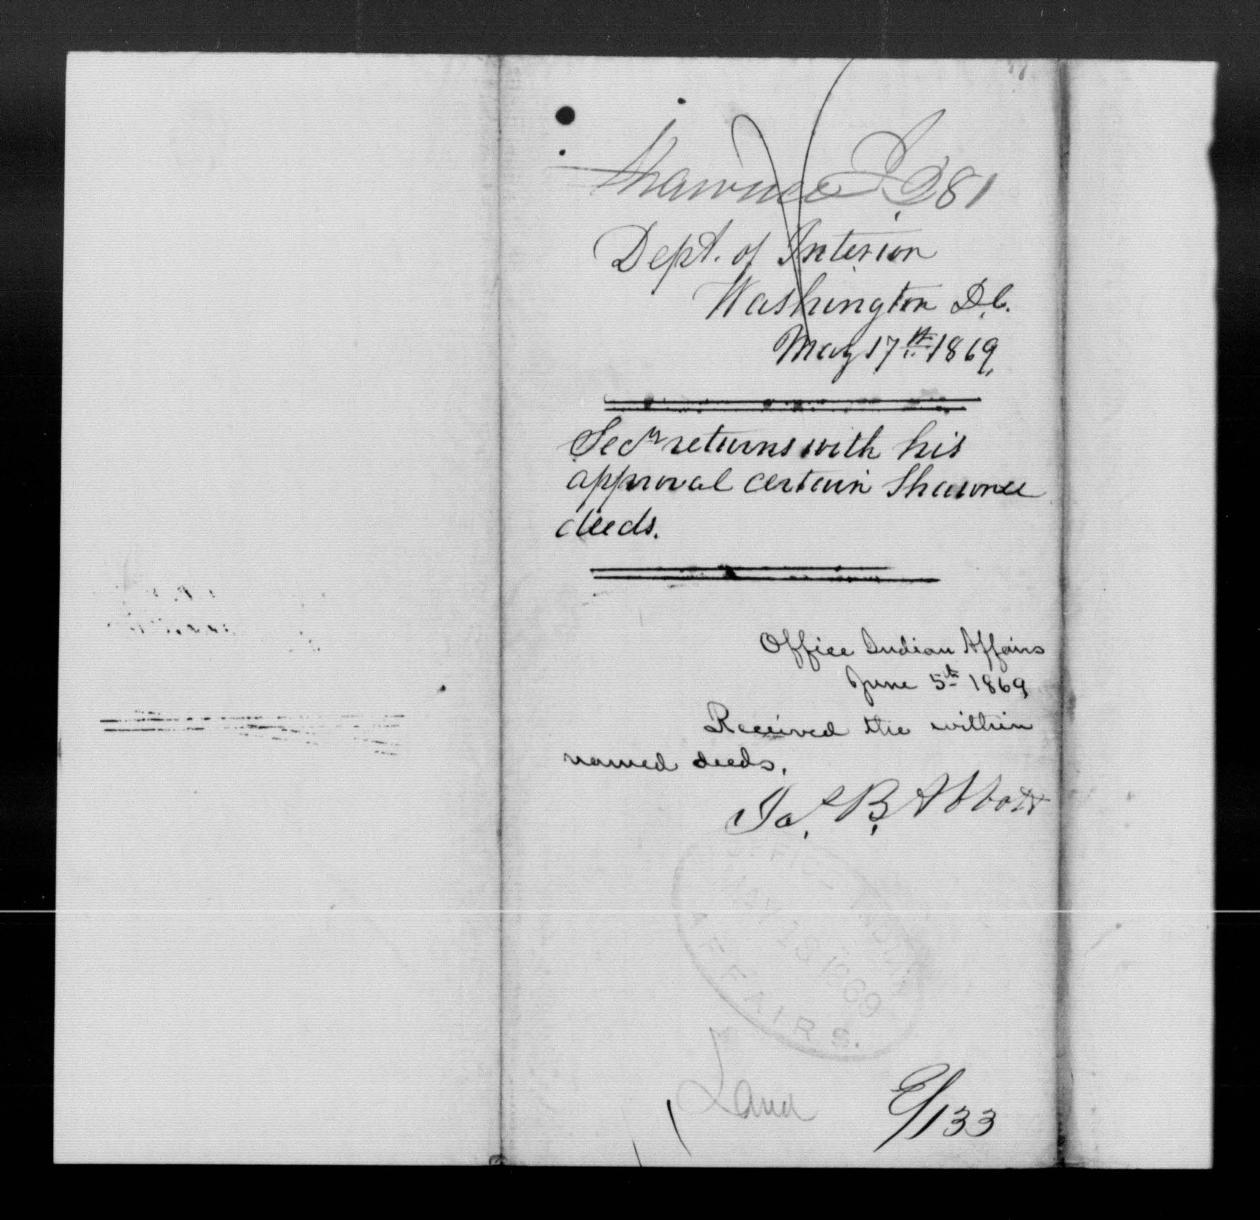 Shawnee I 381
Dept. of Interior
Washington D.C.
May 17th 1869,
Secy returns with his
approval certain Shawnee
deeds.
Office Indian Affairs
June 5th 1869
Received the within
named deeds.
Jas. B. Abbott
OFFICE INDIAN
MAY 18 1869
AFFAIRS.
Land
/133